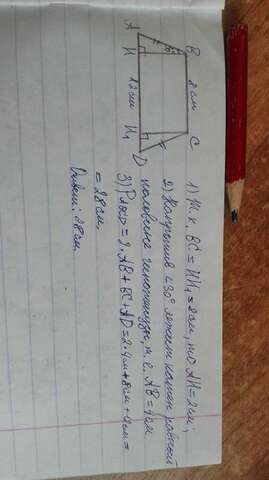 A
B
C
D
H
H₁
30°
8 см
12 см
1) Т.к. BC = HH₁ = 8 см, то AH = 2 см;
2) Напротив ∠30° лежит катет равный
половине гипотенузы, т.е. AB = 4 см
3) P = 2·AB + BC + AD = 2·4 см + 8 см +
= 28 см.
Ответ: 28 см.